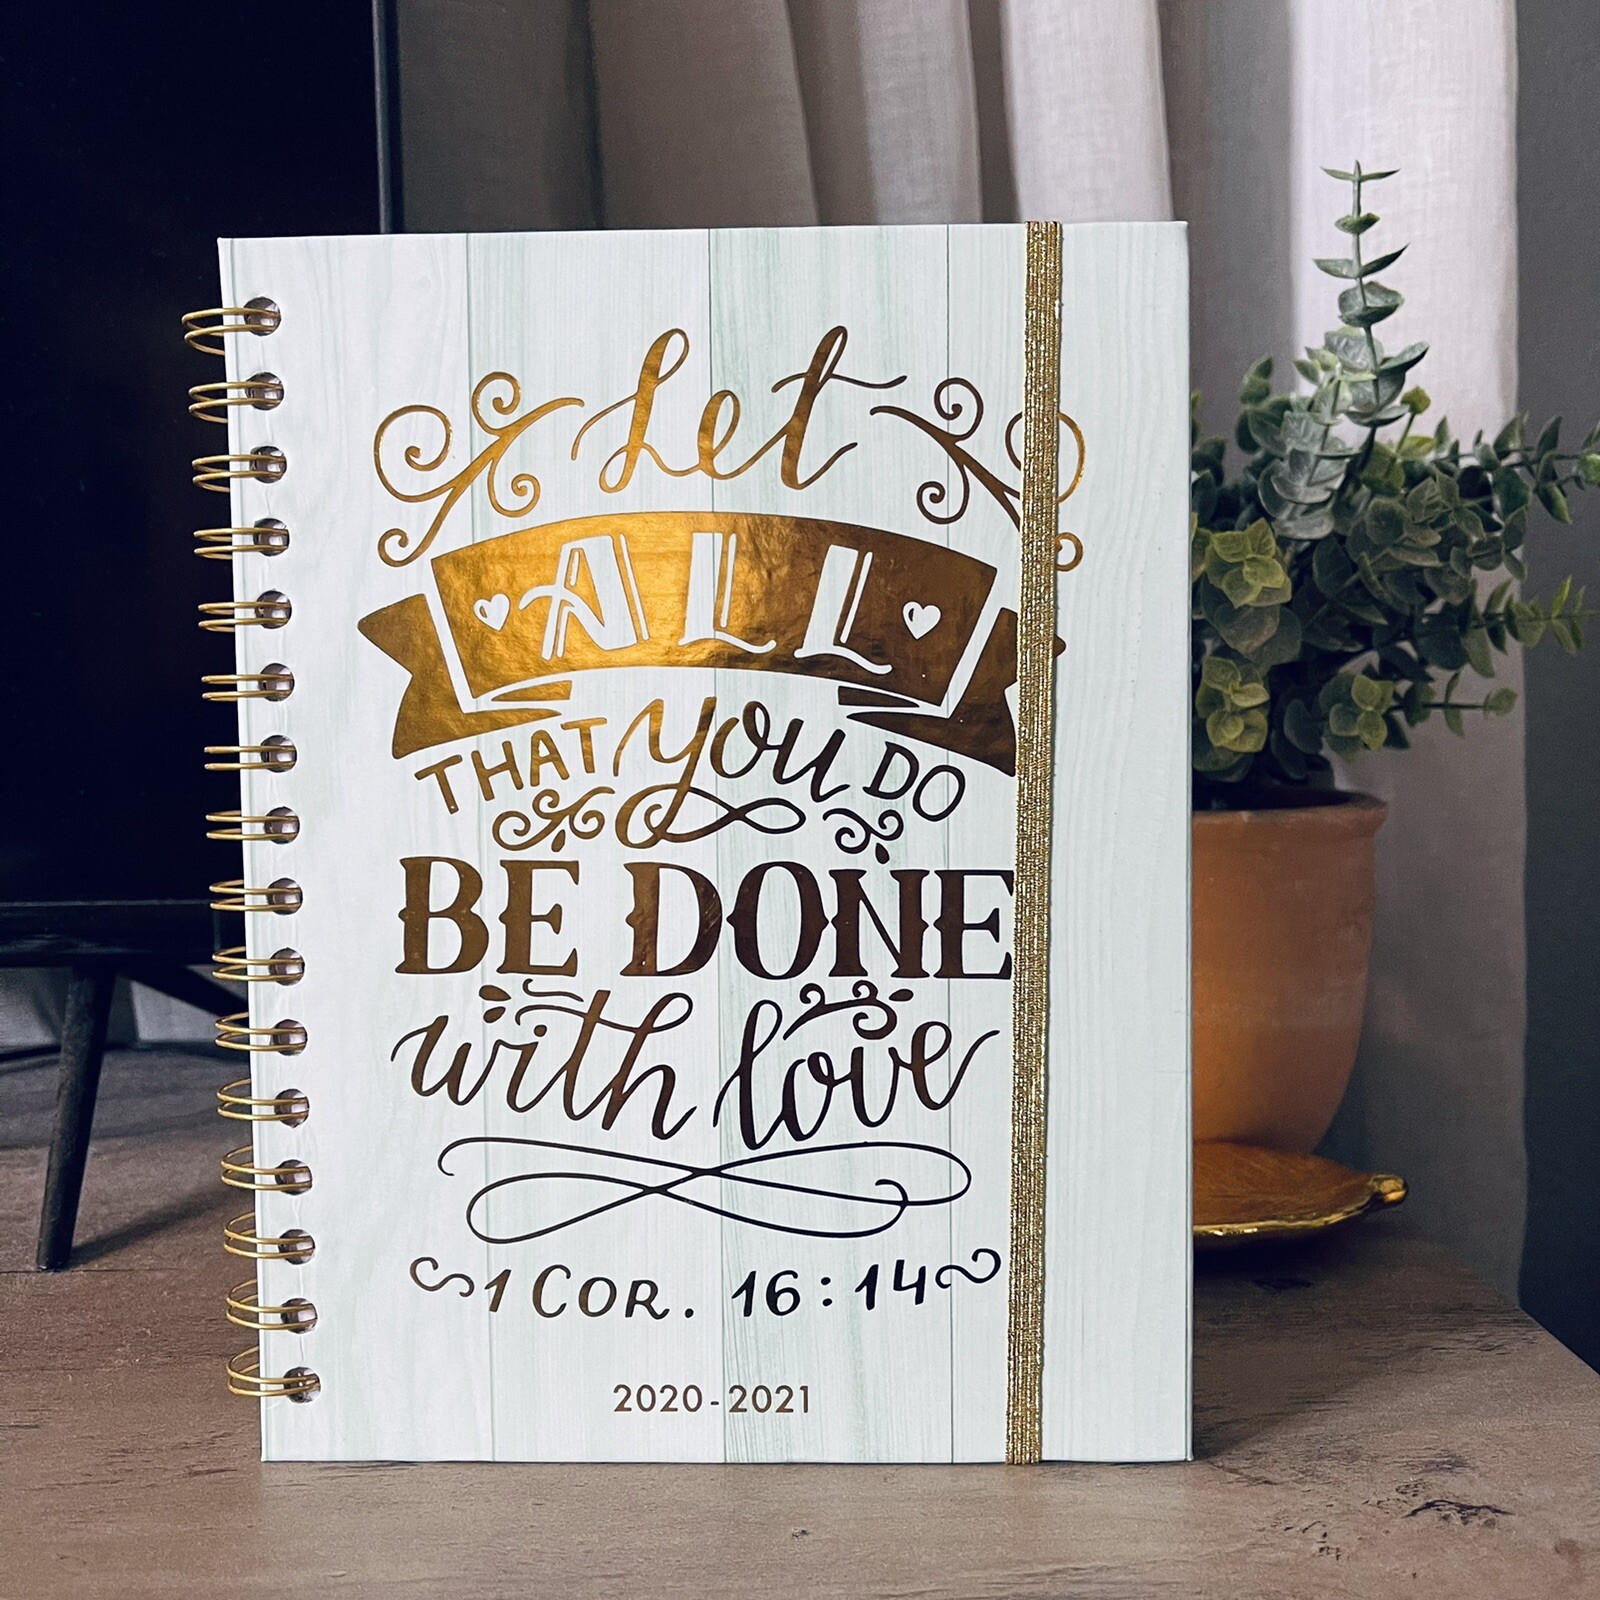 Let
ALL
THAT you DO
BE DONE
with love
1 COR. 16:14
2020-2021